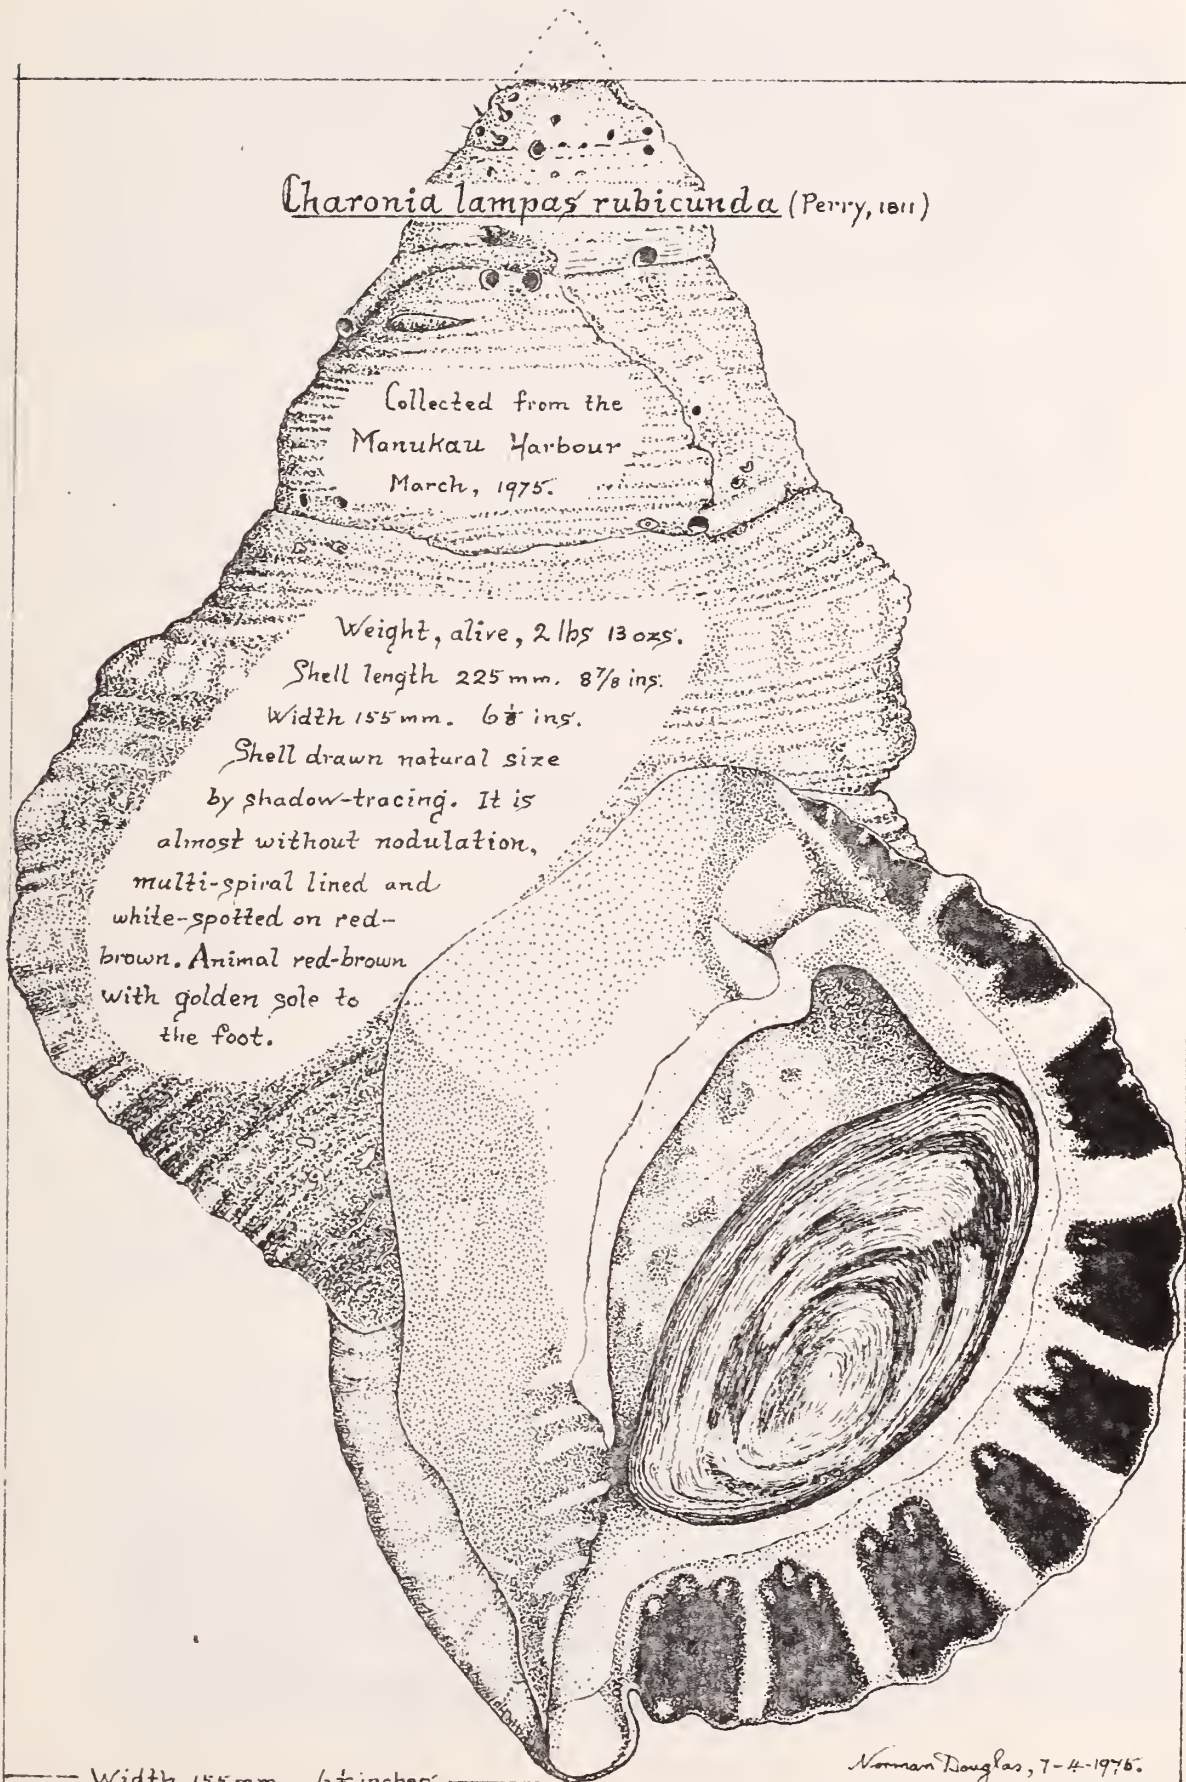 Charonia lampas rubicunda (Perry, 1811)
Collected from the
Manukau Harbour
March, 1975.
Weight, alive, 2 lbs 13 ozs.
Shell length 225 mm. 8 7/8 ins.
Width 155 mm. 6 1/8 ins.
Shell drawn natural size
by shadow-tracing. It is
almost without nodulation,
multi-spiral lined and
white-spotted on red-
brown. Animal red-brown
with golden sole to
the foot.
Norman Douglas, 7-4-1975.
Width 155 mm 6 1/8 inches